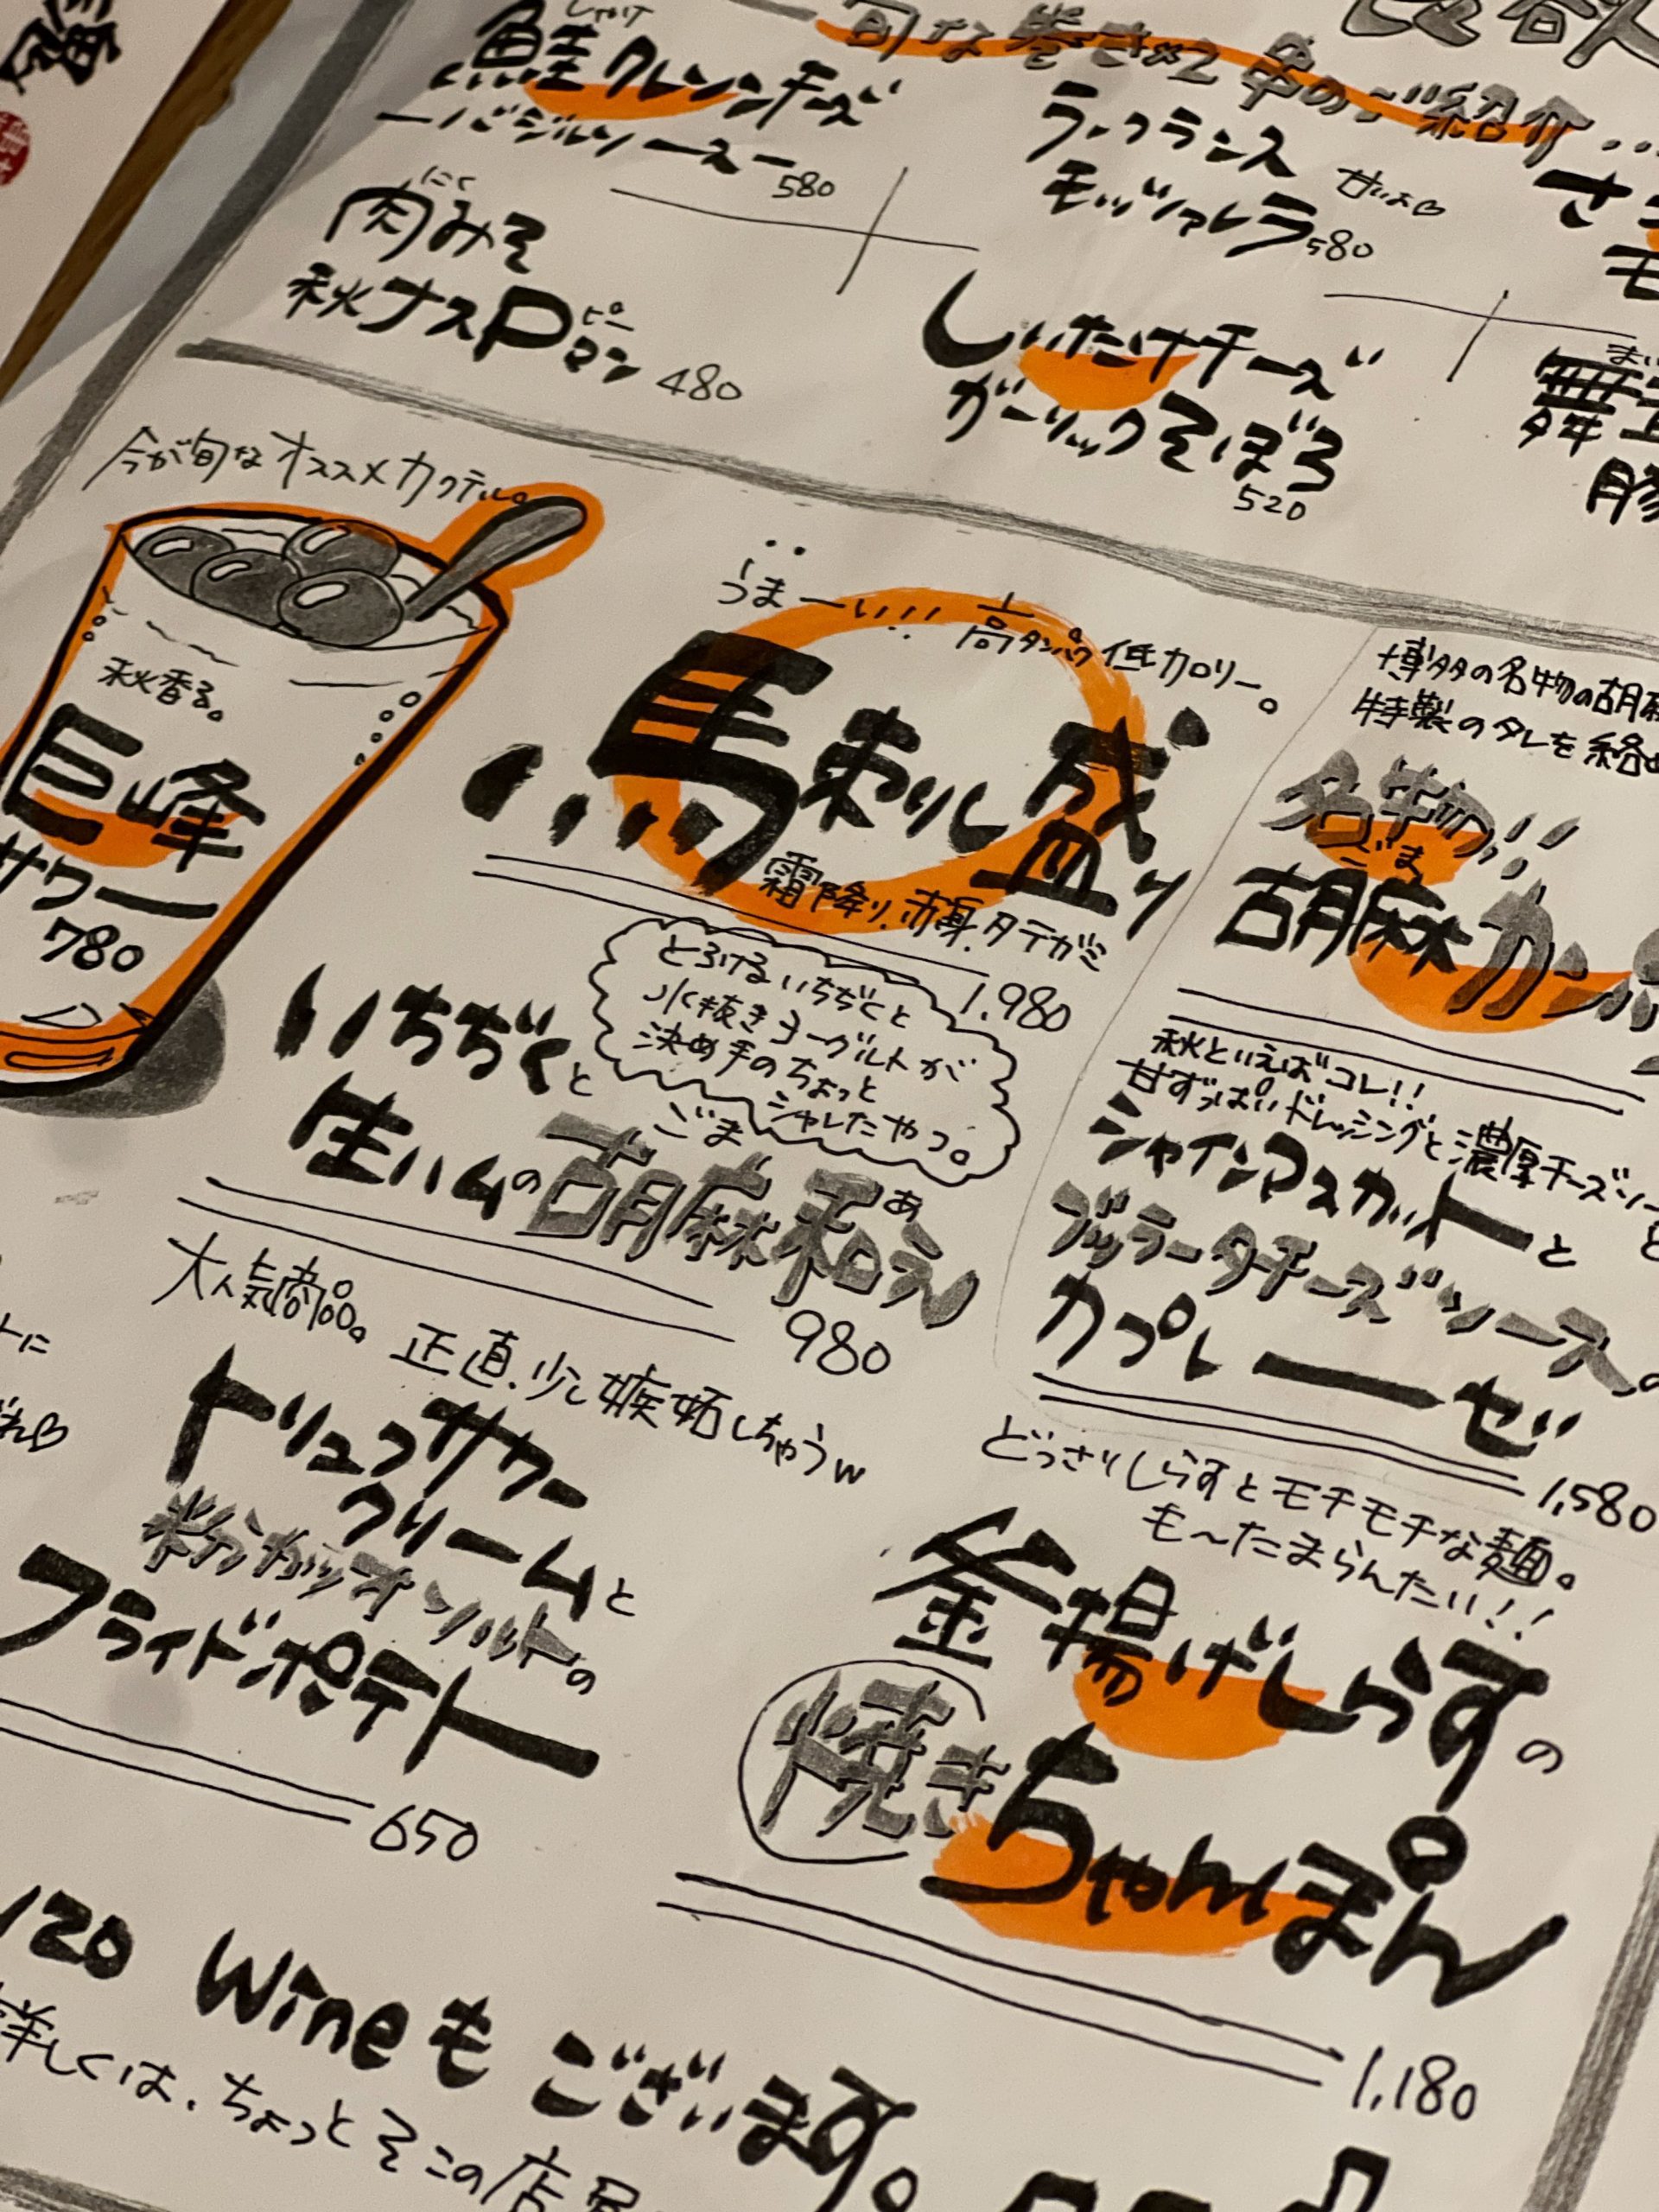 旬な巻き串のご紹介...
しゃけ
鮭クレソンチーズ
ーバジルソースー 580
ラ・フランス
モッツァレラ 580
甘いよ♡
さ
モ
にく
肉みそ
秋ナスPマン 480
ピー
しいたけチーズ
ガーリックそぼろ
520
まい
舞
今が旬なオススメカクテル。
秋香る。
巨峰
サワー
780
うまーい!! 高タンパク低カロリー。
馬刺し盛り
霜降り.赤身.タテガミ
1,980
博多の名物の胡麻
特製のタレを絡め
名物!!
ごま
胡麻カンパ
とろけるいちぢくと
水抜きヨーグルトが
決め手のちょっと
シャレたやつ。
いちぢくと
生ハムの胡麻和え
ごま
あ
980
秋といえばコレ!!
甘ずっぱいドレッシングと濃厚チーズソー
シャインマスカットと
ブッラータチーズソースの
カプレーゼ
1,580
大人気商品。正直、少し嫉妬しちゃうw
トリュフサワー
クリームと
粉カツオソルトの
フライドポテト
650
どっさりしらすとモチモチな麺。
も〜たまらんたい!!
釜揚げしらすの
焼きちゃんぽん
1,180
120 Wineもございます。
詳しくは、ちょっとそこの店員